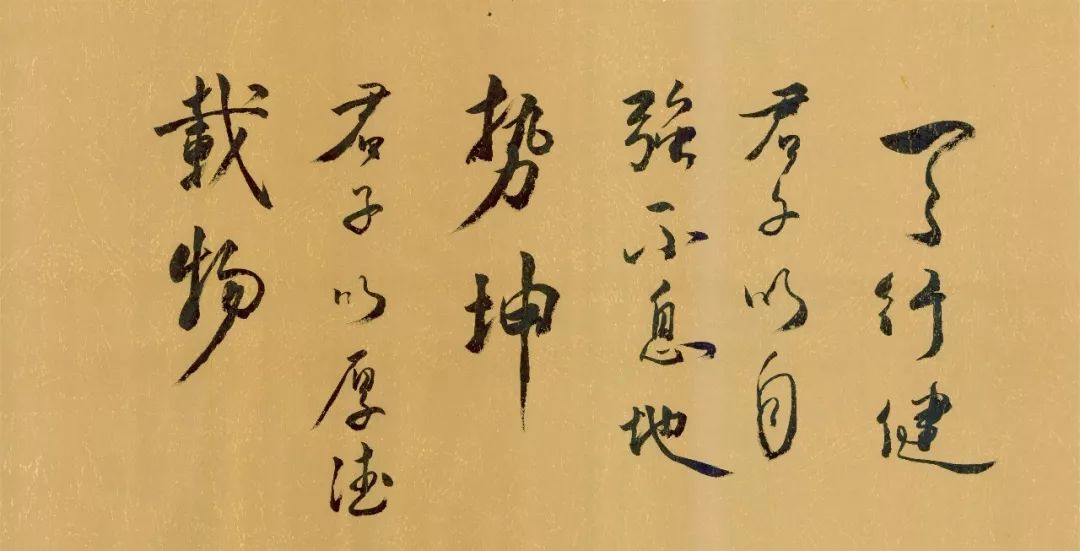 天行健
君子以自
强不息地
势坤
君子以厚德
載物